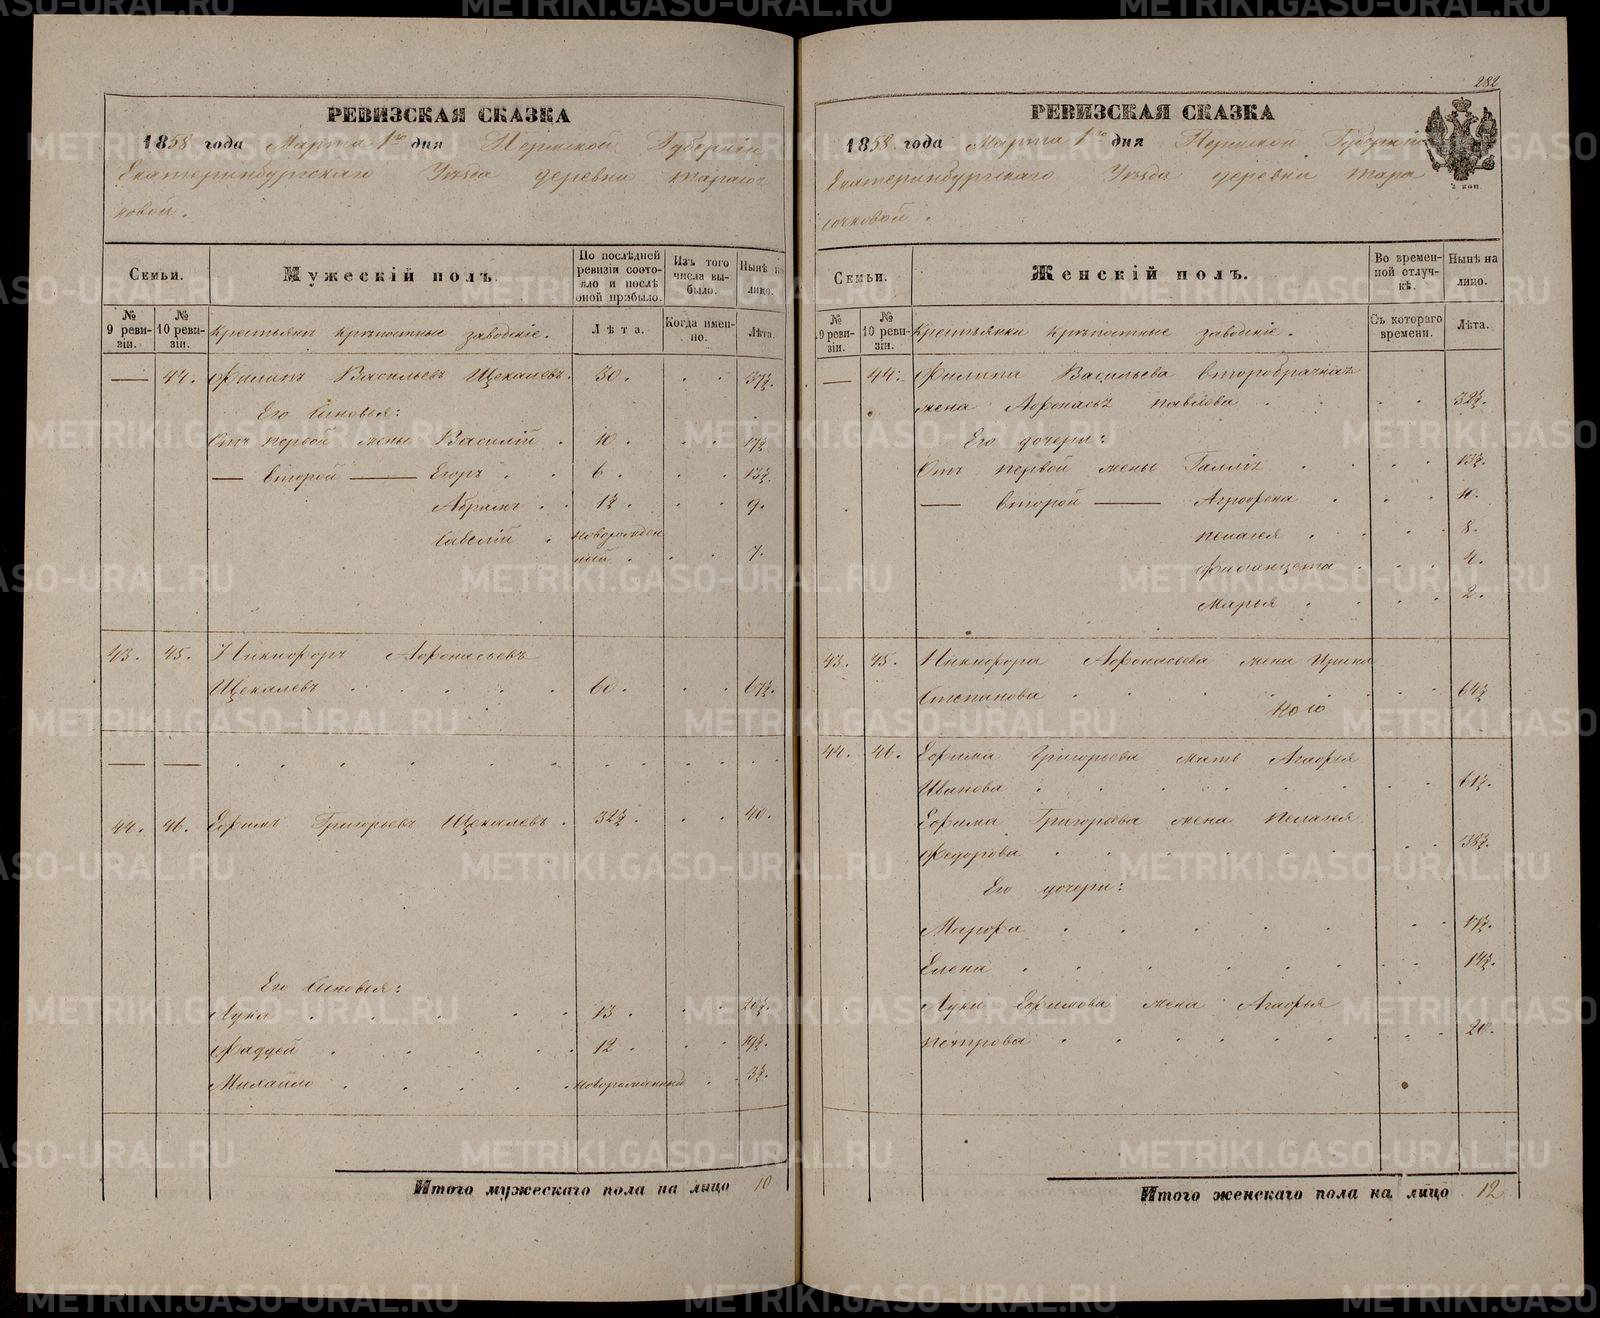 282
РЕВИЗСКАЯ СКАЗКА
1858 года Марта 1го дня Пермской Губерніи
Екатеринбургскаго Уѣзда деревни Тарасо
ковой.
Семьи.
Мужескій полъ.
По послѣдней ревизіи состояло и послѣ оной прибыло.
Изъ того числа выбыло.
Нынѣ на лицо.
№ 9 ревизіи.
№ 10 ревизіи.
Крестьянъ крѣпостные заводскіе.
Лѣта.
Когда именно.
Лѣта.
— 44. Филипъ Васильевъ Щекалевъ. 30. 37½.
Его Сыновья:
Отъ первой жены Василій 10. 17½
— второй — Егоръ 6. 13½.
Абрамъ 1½. 9.
Савелій новорожден
ный 7.
43. 45. Никифоръ Афонасьевъ
Щекалевъ 60. 67½.
44. 46. Ефимъ Григорьевъ Щекалевъ. 32½. 40.
Его Сыновья:
Лука 13. 20½.
Фаддей 12. 19½.
Михайло новорожденный 3½.
Итого мужескаго пола на лицо 10
РЕВИЗСКАЯ СКАЗКА
1858 года Марта 1го дня Пермской Губерніи
Екатеринбургскаго Уѣзда деревни Тара
сочковой.
2 коп.
Семьи.
Женскій полъ.
Во временной отлучкѣ.
Нынѣ на лицо.
№ 9 ревизіи.
№ 10 ревизіи.
Крестьянки крѣпостные заводскіе.
Съ котораго времени.
Лѣта.
— 44. Филипа Васильева второбрачная
жена Афонасья Павлова 32½.
Его дочери:
Отъ первой жены 13½.
— второй — Агрофена 10.
Пелагея 8.
4.
Марья 2.
43. 45. Никифора Афонасьева жена Ирина
Степанова 64½
44. 46. Ефима Григорьева мать Агафья
Иванова 61½.
Ефима Григорьева жена Пелагея
Федорова 38½.
Его дочери:
Марфа 17½.
Елена 14½.
Луки Ефимова жена Агафья
Петрова 20.
Итого женскаго пола на лицо 12
METRIKI.GASO-URAL.RU